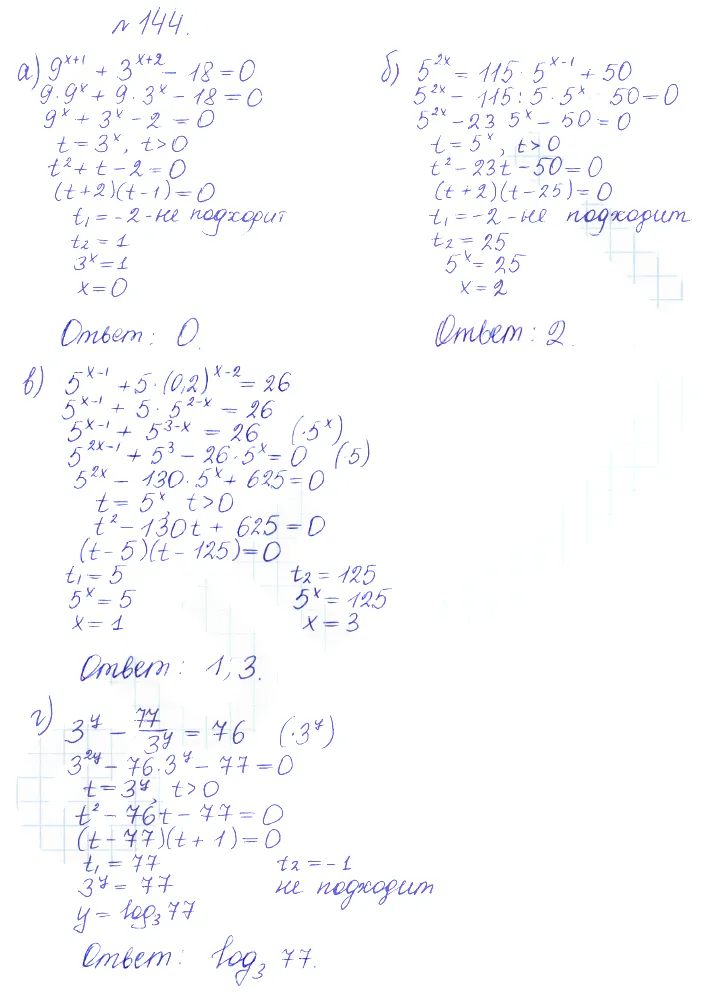 № 144.
а) 9^{x+1} + 3^{x+2} - 18 = 0
9·9^x + 9·3^x - 18 = 0
9^x + 3^x - 2 = 0
t = 3^x, t > 0
t^2 + t - 2 = 0
(t+2)(t-1) = 0
t₁ = -2 - не подходит
t₂ = 1
3^x = 1
x = 0
Ответ: 0.
б) 5^{2x} = 115·5^{x-1} + 50
5^{2x} - 115:5·5^x 50 = 0
5^{2x} - 23 5^x - 50 = 0
t = 5^x, t > 0
t^2 - 23t - 50 = 0
(t+2)(t-25) = 0
t₁ = -2 - не подходит
t₂ = 25
5^x = 25
x = 2
Ответ: 2.
в) 5^{x-1} + 5·(0,2)^{x-2} = 26
5^{x-1} + 5·5^{2-x} = 26
5^{x-1} + 5^{3-x} = 26 (·5^x)
5^{2x-1} + 5^3 - 26·5^x = 0 (5)
5^{2x} - 130·5^x + 625 = 0
t = 5^x, t > 0
t^2 - 130t + 625 = 0
(t-5)(t-125) = 0
t₁ = 5 t₂ = 125
5^x = 5 5^x = 125
x = 1 x = 3
Ответ: 1; 3.
г) 3^y - 77/3^y = 76 (·3^y)
3^{2y} - 76·3^y - 77 = 0
t = 3^y, t > 0
t^2 - 76t - 77 = 0
(t-77)(t+1) = 0
t₁ = 77 t₂ = -1
3^y = 77 не подходит
y = log₃77
Ответ: log₃ 77.